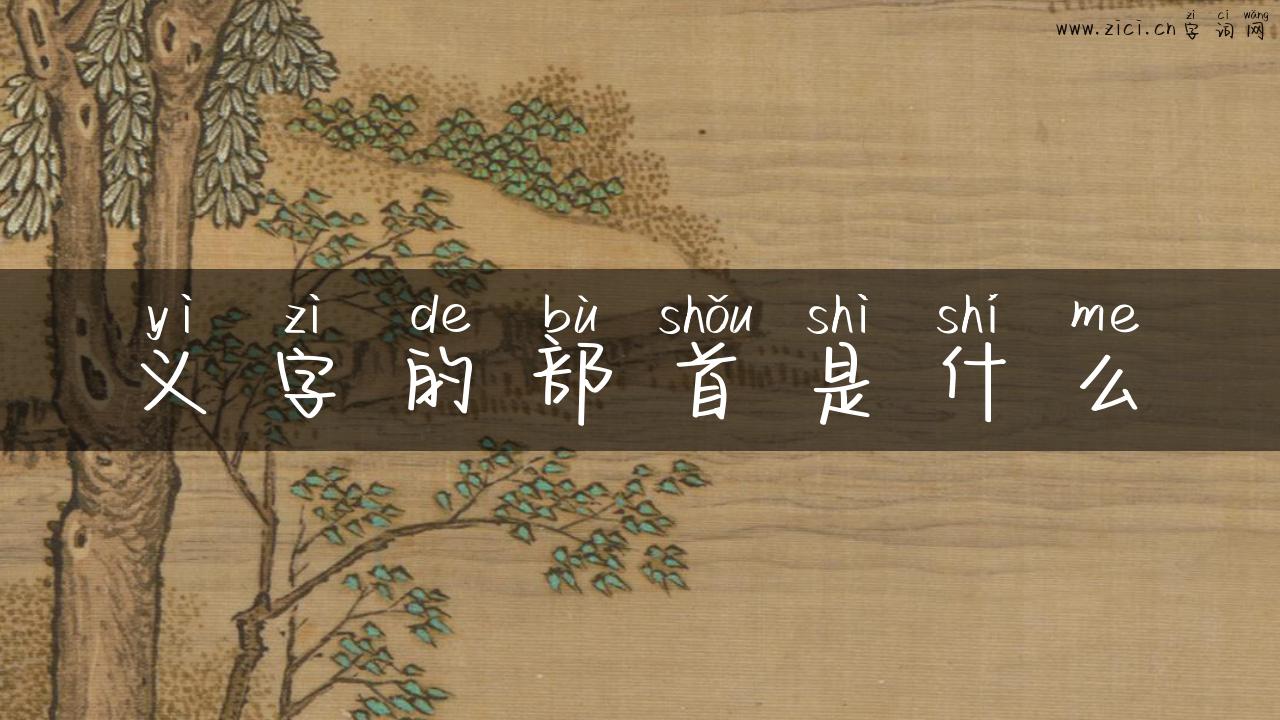 zì cí wǎng
www.zici.cn 字词网
yì zì de bù shǒu shì shí me
义字的部首是什么